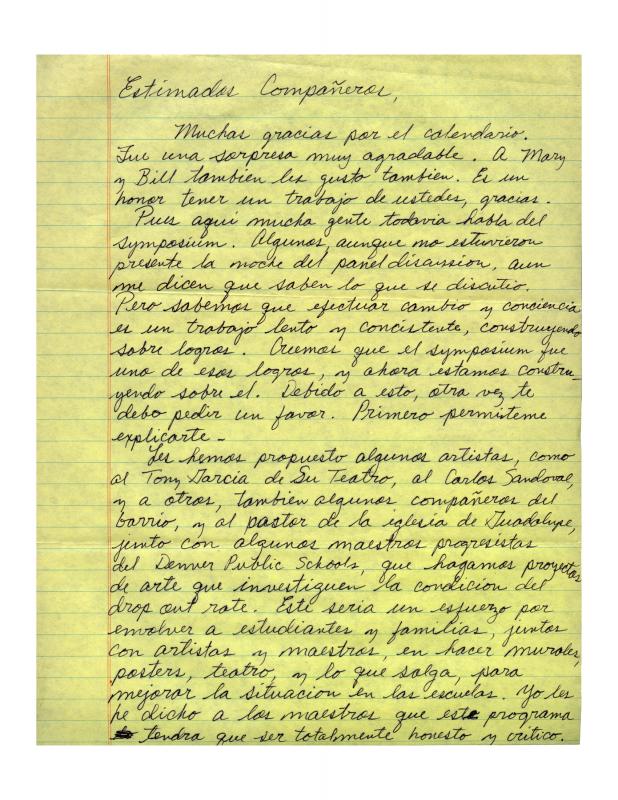 Estimados Compañeros,
Muchas gracias por el calendario.
Fue una sorpresa muy agradable. A Mary
y Bill tambien les gusto tambien. Es un
honor tener un trabajo de ustedes, gracias.
Pues aqui mucha gente todavia habla del
symposium. Algunos, aunque no estuvieron
presente la noche del panel discussion, aun
me dicen que saben lo que se discutio.
Pero sabemos que efectuar cambio y conciencia
es un trabajo lento y concistente, construyendo
sobre logros. Creemos que el symposium fue
uno de esos logros, y ahora estamos constru-
yendo sobre el. Debido a esto, otra vez te
debo pedir un favor. Primero permiteme
explicarte -
Les hemos propuesto algunos artistas, como
al Tony Garcia de Su Teatro, al Carlos Sandoval,
y a otros, tambien algunos compañeros del
barrio, y al pastor de la iglesia de Guadalupe,
junto con algunos maestros progresistas
del Denver Public Schools, que hagamos proyectos
de arte que investiguen la condicion del
drop out rate. Este seria un esfuerzo por
envolver a estudiantes y familias, juntos
con artistas y maestros, en hacer murales,
posters, teatro, y lo que salga, para
mejorar la situacion en las escuelas. Yo les
he dicho a los maestros que este programa
tendra que ser totalmente honesto y critico.